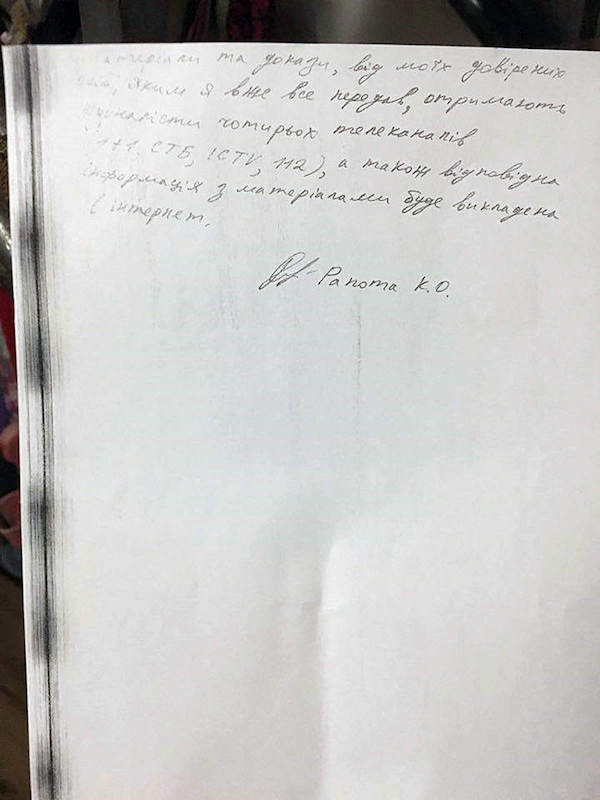 матеріали та докази, від моїх довірених
яким я вже все передав, отримають
журналісти чотирьох телеканалів
(1+1, СТБ, ICTV, 112), а також відповідна
інформація з матеріалами буде викладена
в інтернет.
Рапота К.О.